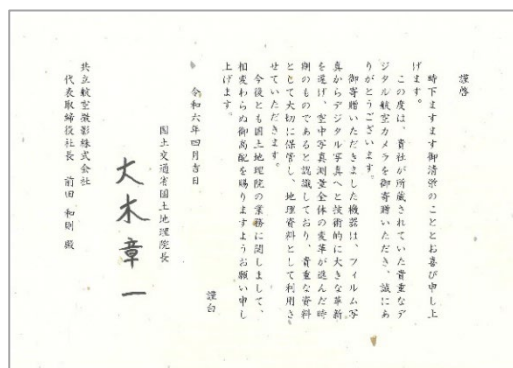 謹啓
時下ますます御清栄のこととお喜び申し上
げます。
この度は、貴社が所蔵されていた貴重なデ
ジタル航空カメラを御寄贈いただき、誠にあ
りがとうございます。
御寄贈いただきました機器は、フィルム写
真からデジタル写真へと技術的に大きな革新
を遂げ、空中写真測量全体の変革が進んだ時
期のものであると認識しており、貴重な資料
として大切に保管し、地理資料として利用さ
せていただきます。
今後とも国土地理院の業務に関しまして、
相変わらぬ御高配を賜りますようお願い申し
上げます。
謹白
令和六年四月吉日
国土交通省国土地理院長
大木章一
共立航空撮影株式会社
代表取締役社長 前田 和則 殿